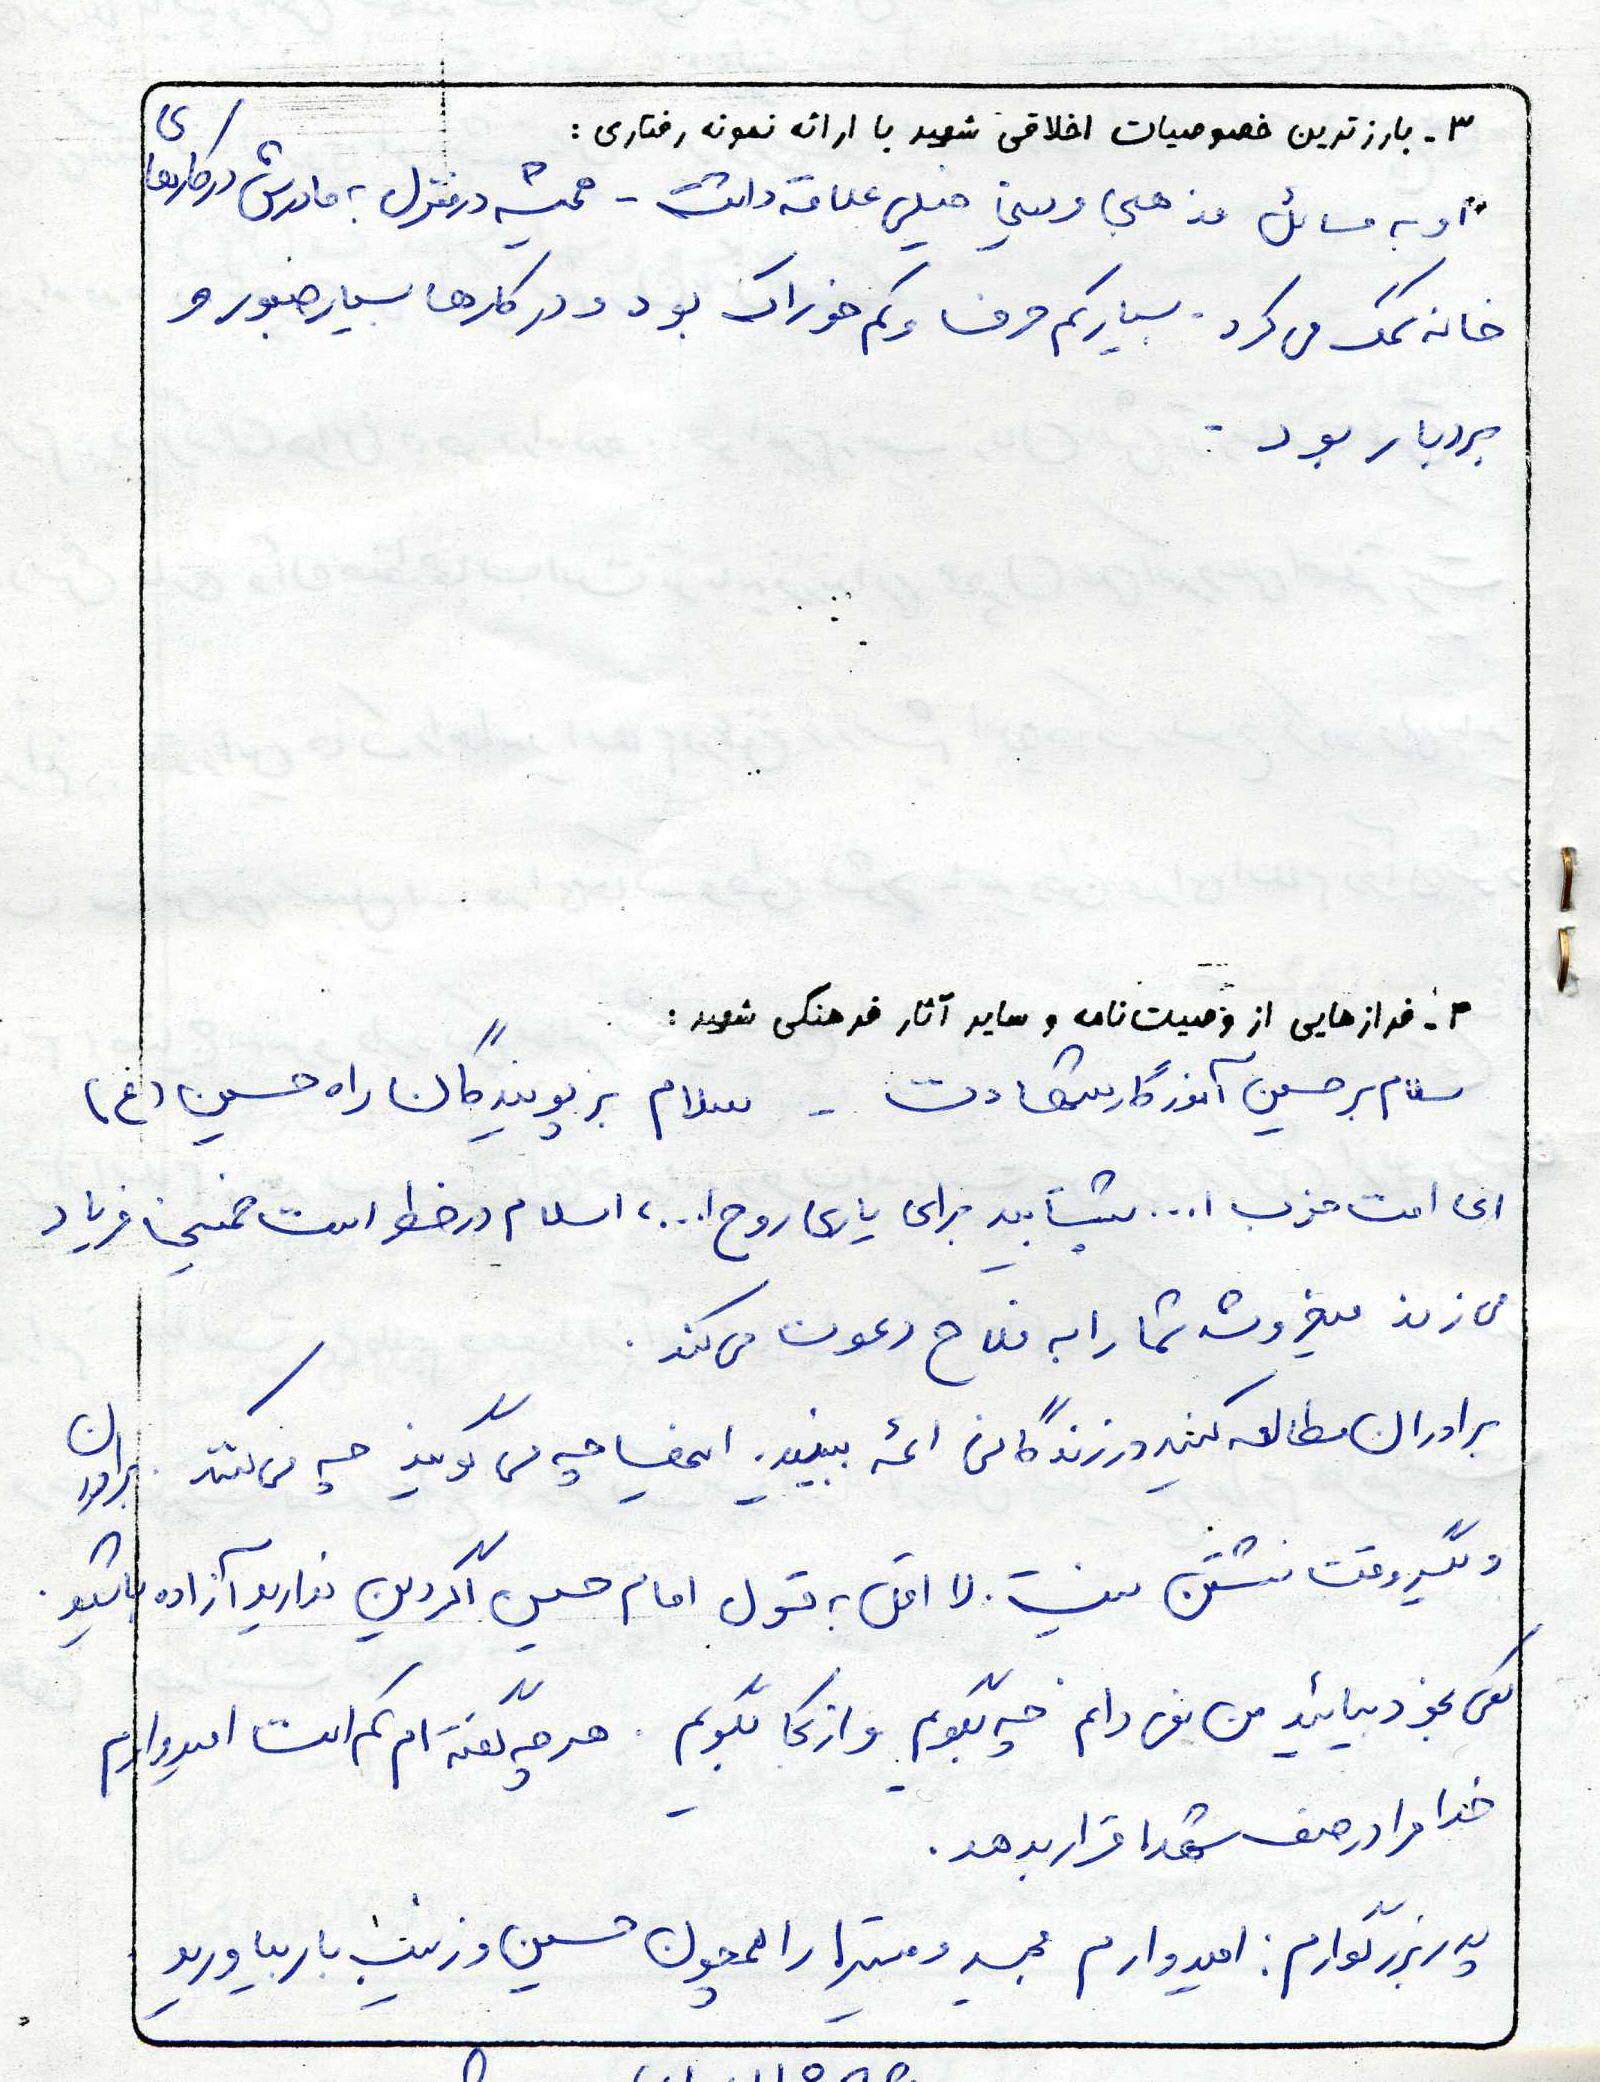 ۳ـ بارزترین خصوصیات اخلاقی شهید با ارائه نمونه رفتاری :
او به مسائل مذهبی و دینی خیلی علاقه داشت - همیشه در منزل به مادرش در کارهای
خانه کمک می کرد . بسیار کم حرف و کم خوراک بود و در کارها بسیار صبور و
بردبار بود .
۴ـ فرازهایی از وصیت‌نامه و سایر آثار فرهنگی شهید :
سلام بر حسین آموزگار شهادت - سلام بر پویندگان راه حسین (ع)
ای امت حزب ا... بشتابید برای یاری روح ا...، اسلام در خطر است خمینی فریاد
می زند میخروشد شما را به فلاح دعوت می کند .
برادران مطالعه کنید در زندگانی ائمه ببینید. آنها چه می گویند چه می کنند . برادران
دیگر وقت نشستن نیست . لا اقل به قول امام حسین اگر دین ندارید آزاده باشید .
کمی بخود بیائید من نمی دانم چه بگویم و از کجا بگویم . هر چه گفته ام کم است امیدوارم
خدا مرا در صف شهدا قرار بدهد .
پدر بزرگوارم : امیدوارم مجید و میترا را همچون حسین و زینب بار بیاورید